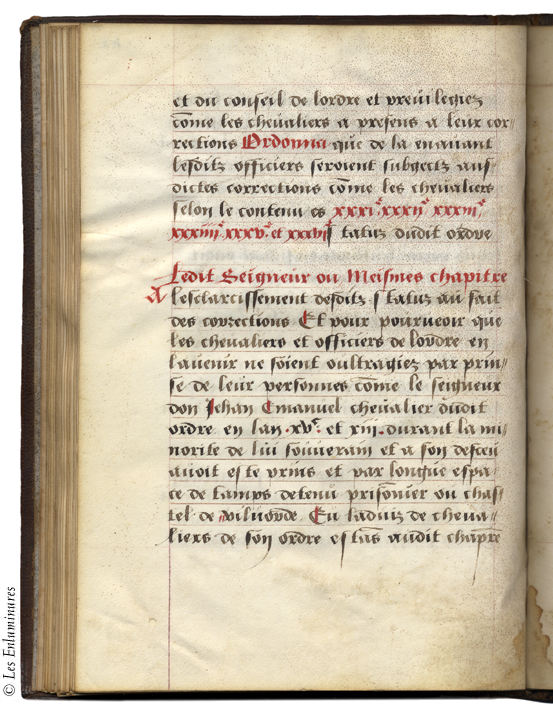 et du conseil de lordre et previlegiez
come les chevaliers a presens a leur cor//
rections Ordonna que de la enavant
lesditz officiers seroient subgectz aus//
dictes corrections come les chevaliers
selon le contenu es xxxi.e xxxii.e xxxiii.e
xxxiiii.e xxxv.e et xxxvi.e statuz dudit ordre
Ledit Seigneur ou Meismes chapitre
A lesclarcissement desditz statuz au fait
des corrections Et pour pourveoir que
les chevaliers et officiers de lordre en
lavenir ne soient oultragiez par prin//
se de leur personnes come le seigneur
don Jehan Emanuel chevalier dudit
ordre en lan .xv.c et xiii. durant la mi
norite de lui souverain et a son desceu
avoit este prins et par longue espa//
ce de tamps detenu prisonier ou chas//
tel de vilvorde En ladviz de cheva//
liers de son ordre estas audit chapre
© Les Enluminures